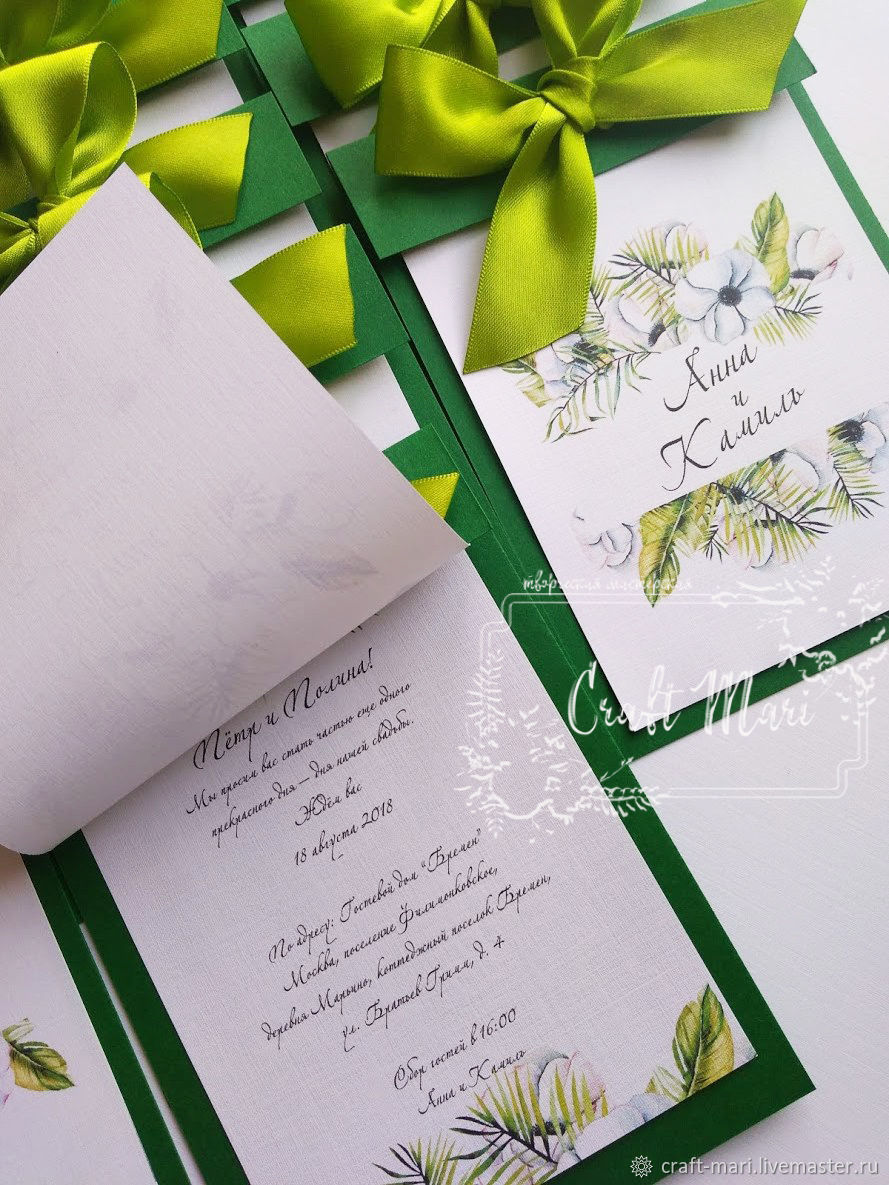 Анна
и
Камиль
творческая мастерская
Craft Mari
Пётр и Полина!
Мы просим вас стать частью еще одного
прекрасного дня — дня нашей свадьбы.
Ждём вас
18 августа 2018
По адресу: Гостевой дом "Бремен"
Москва, поселение Филимонковское,
деревня Марьино, коттеджный поселок Бремен,
ул. Братьев Гримм, д. 4
Сбор гостей в 16:00
Анна и Камиль
craft-mari.livemaster.ru